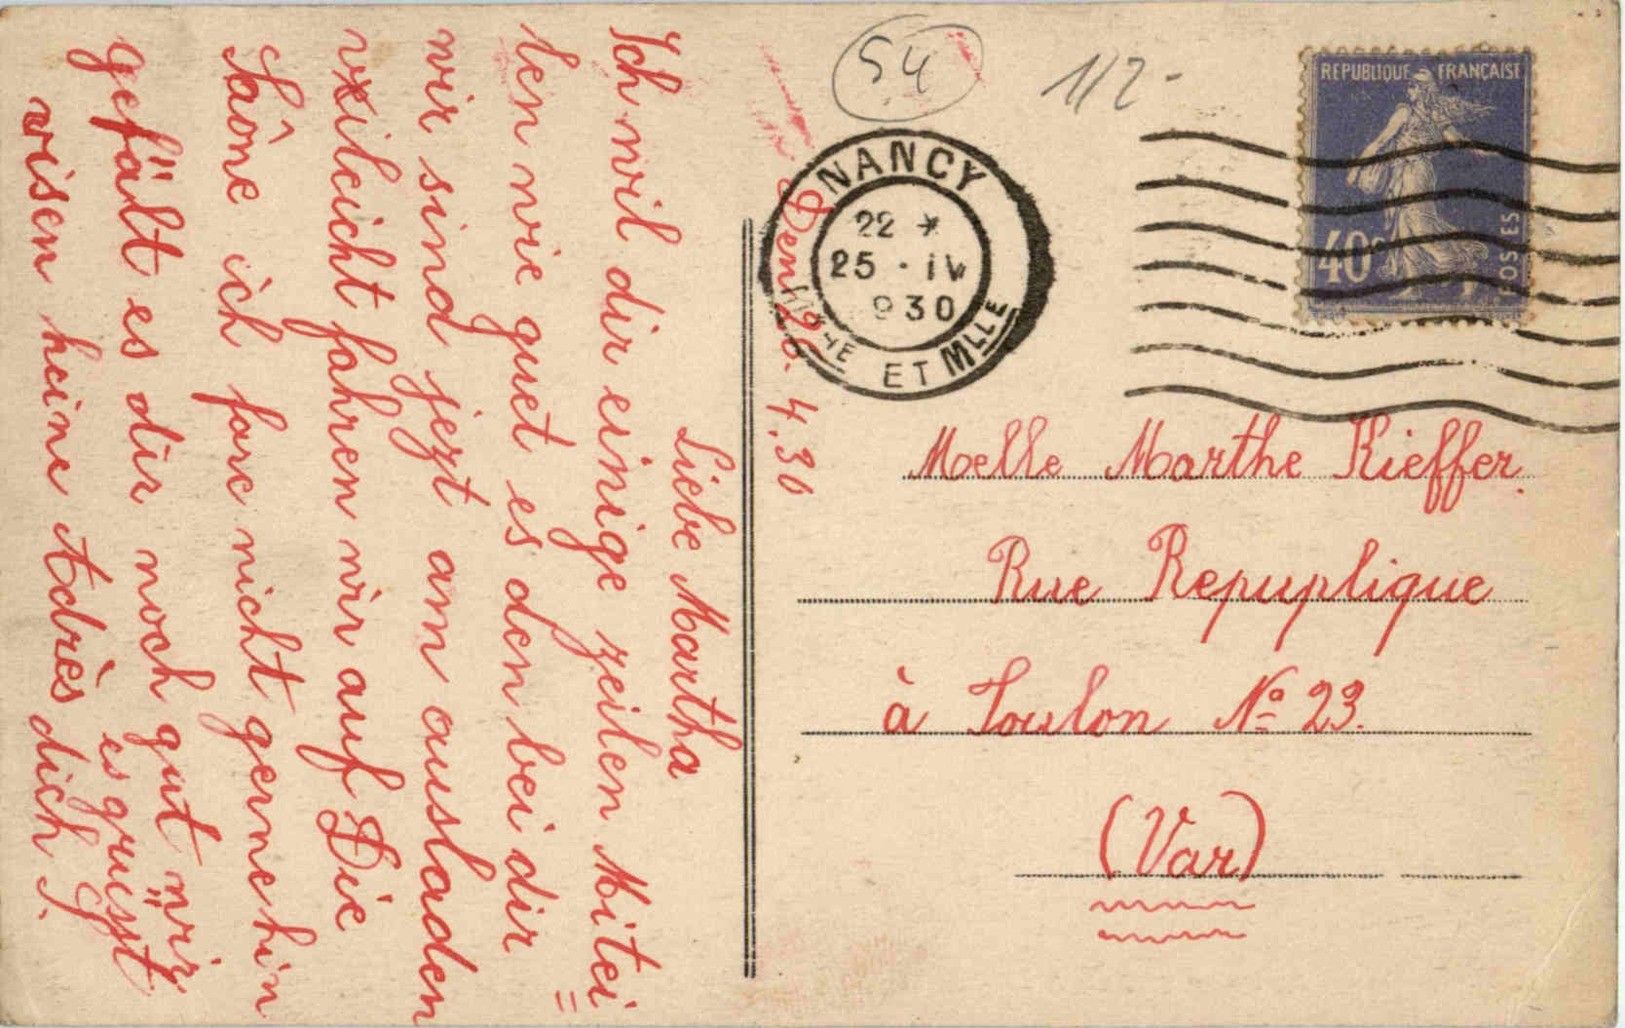 54
112-
REPUBLIQUE FRANÇAISE
40c
POSTES
NANCY
22 *
25 · IV
930
MthE ET MLLE
Den 26. 4. 30
Liebe Martha
Ich wil dir einige zeilen Mitei=
len wie guet es den bei dir
wir sind jezt am ausladen
vileicht fahren wir auf Die
Saône ich fare nicht gerne hin
gefält es dir noch gut wir
wisen keine Adrès
es grüsst
dich J.
Melle Marthe Kieffer.
Rue Repuplique
à Toulon No 23.
(Var)